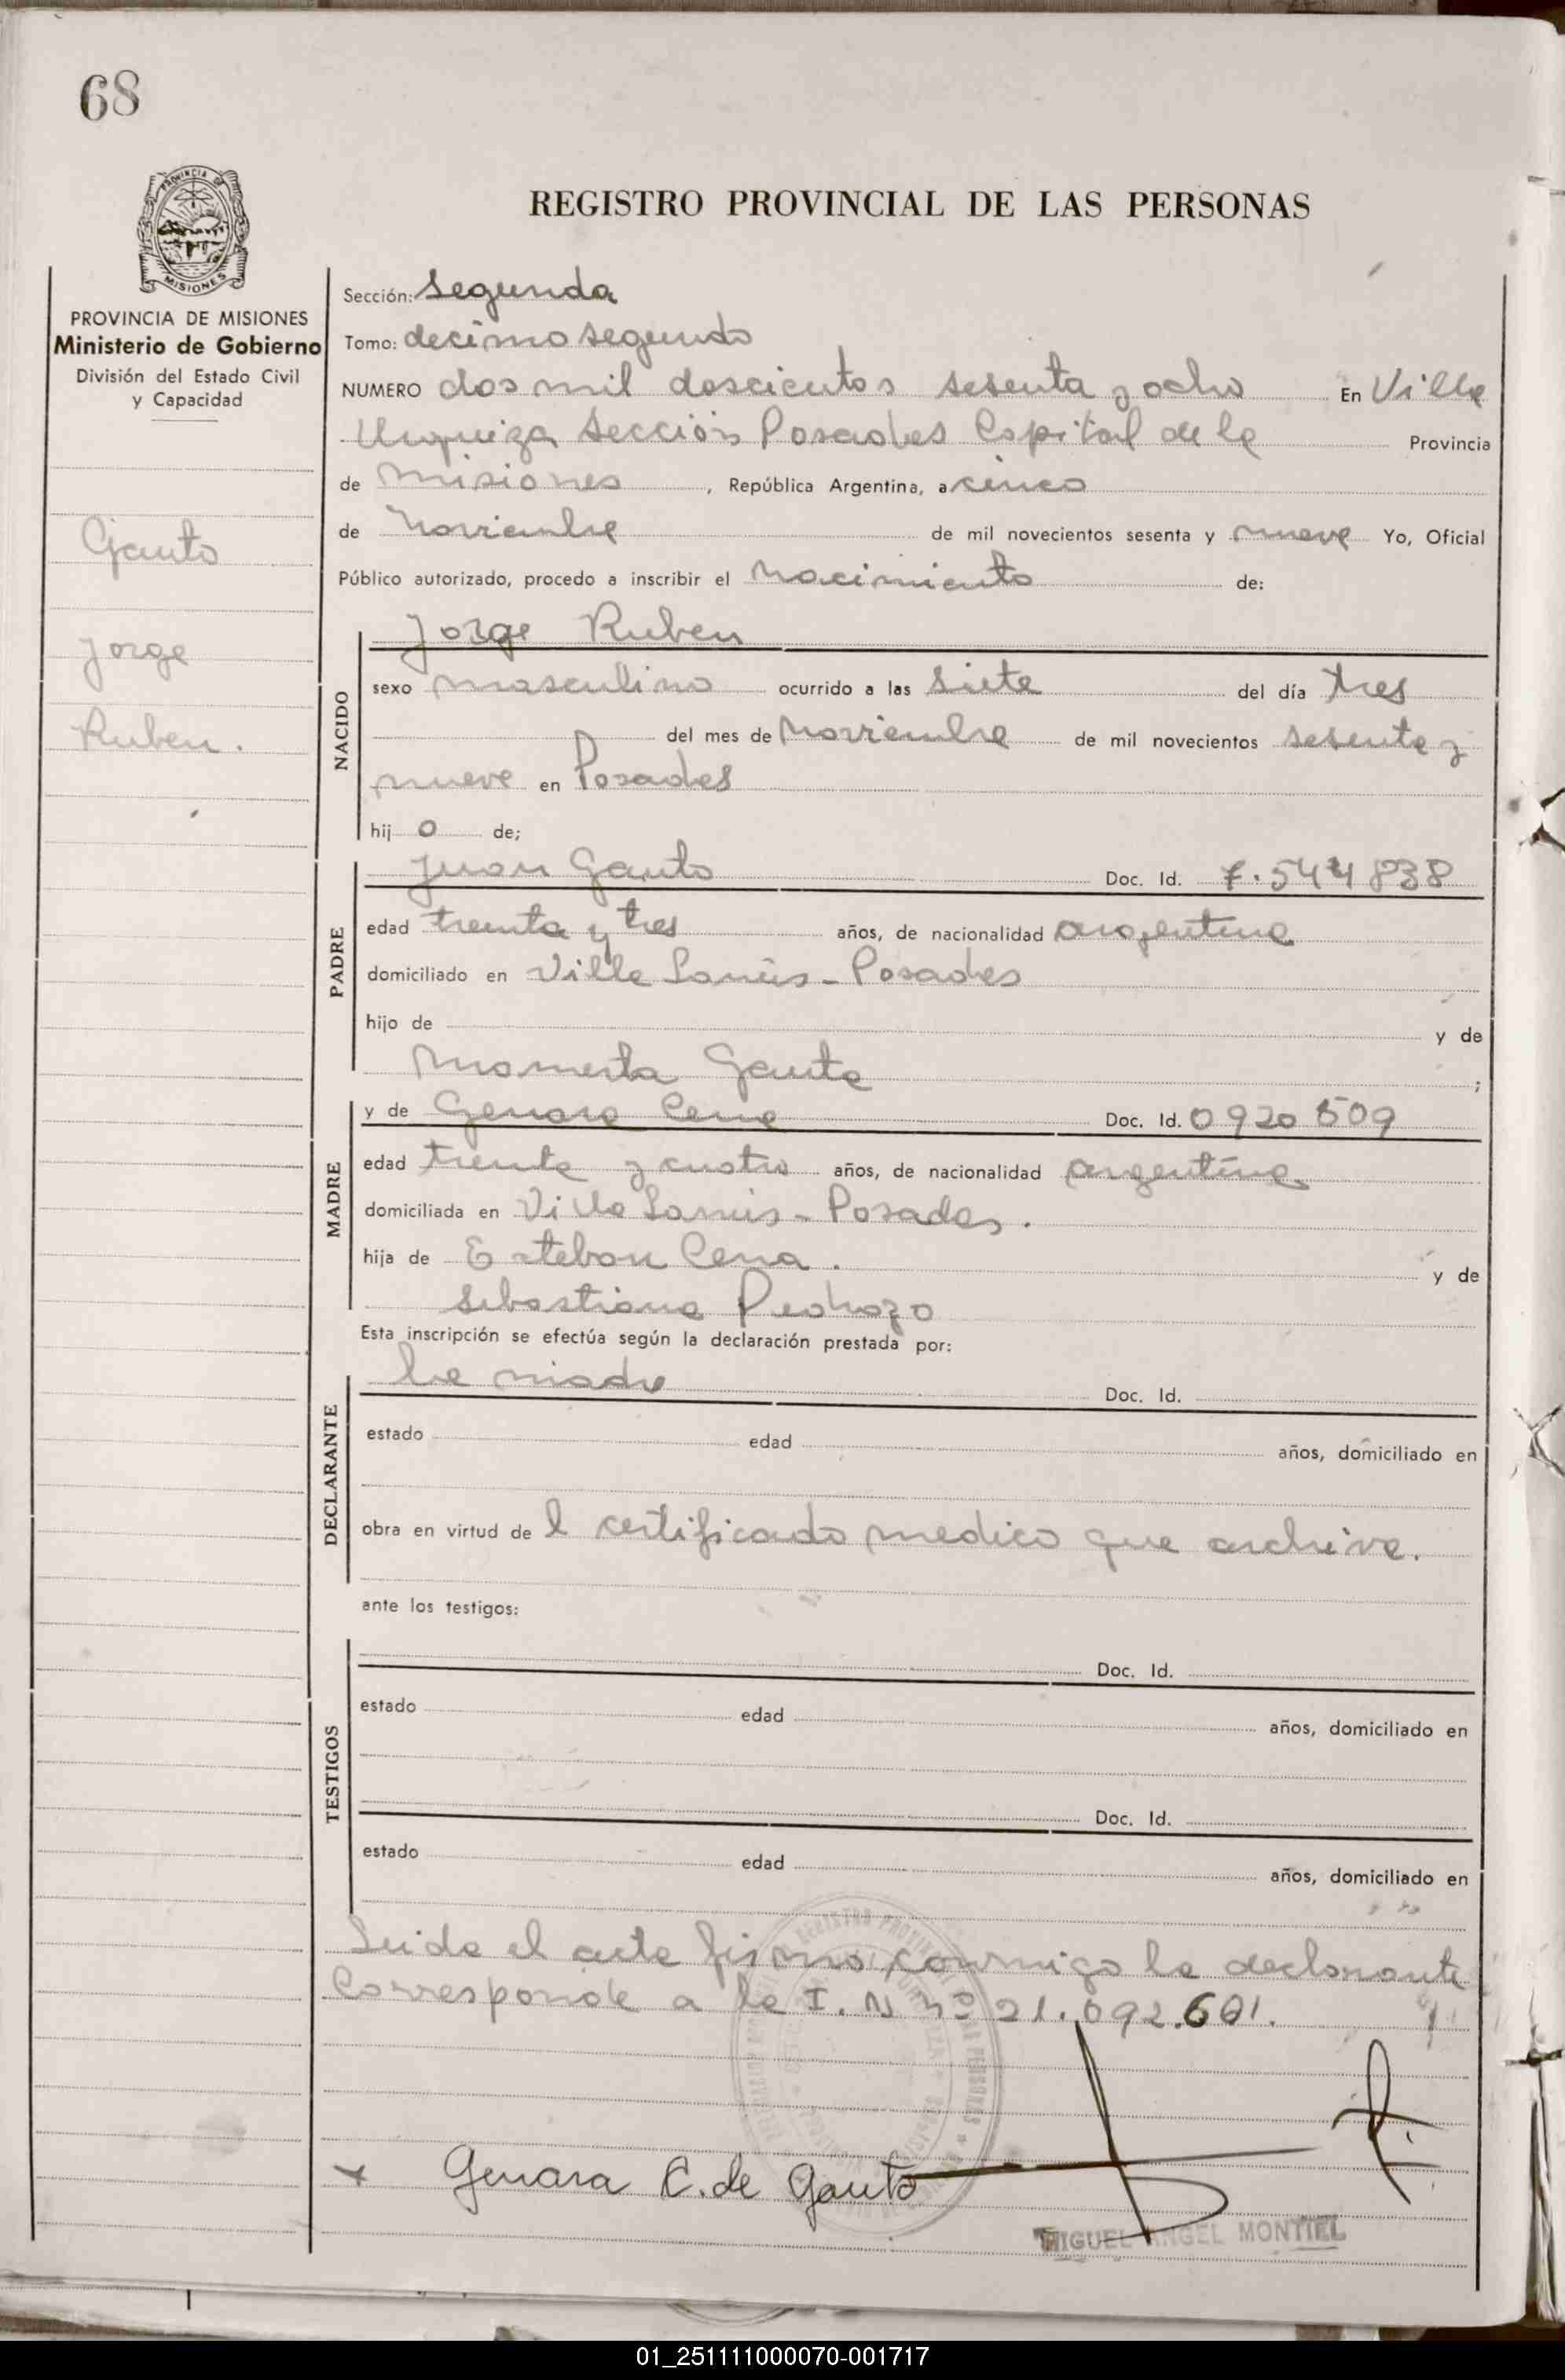 68
REGISTRO PROVINCIAL DE LAS PERSONAS
PROVINCIA DE
MISIONES
PROVINCIA DE MISIONES
Ministerio de Gobierno
División del Estado Civil
y Capacidad
Gauto
Jorge
Ruben.
Sección: Segunda
Tomo: decimo segundo
NUMERO dos mil doscientos sesenta y ocho En Villa
Urquiza Sección Posadas Capital de la Provincia
de Misiones, República Argentina, a cinco
de Noviembre de mil novecientos sesenta y nueve Yo, Oficial
Público autorizado, procedo a inscribir el Nacimiento de:
NACIDO
Jorge Ruben
sexo masculino ocurrido a las siete del día tres
del mes de Noviembre de mil novecientos sesenta y
nueve en Posadas
hij o de;
PADRE
Juan Gauto Doc. Id. 7.544838
edad treinta y tres años, de nacionalidad argentina
domiciliado en Villa Lanús - Posadas
hijo de y de
Gauto ;
MADRE
y de Genara Cena Doc. Id. 0920509
edad treinta y cuatro años, de nacionalidad argentina
domiciliada en Villa Lanús - Posadas.
hija de Esteban Cena. y de
Sebastiana Pedrozo
Esta inscripción se efectúa según la declaración prestada por:
DECLARANTE
la madre Doc. Id.
estado edad años, domiciliado en
obra en virtud de l certificado medico que archiva.
ante los testigos:
TESTIGOS
Doc. Id.
estado edad años, domiciliado en
Doc. Id.
estado edad años, domiciliado en
Leida el acta firma conmigo la declarante
Corresponde a la I. N nº 21.092.601.
x Genara C. de Gauto
MIGUEL ANGEL MONTIEL
01_251111000070-001717